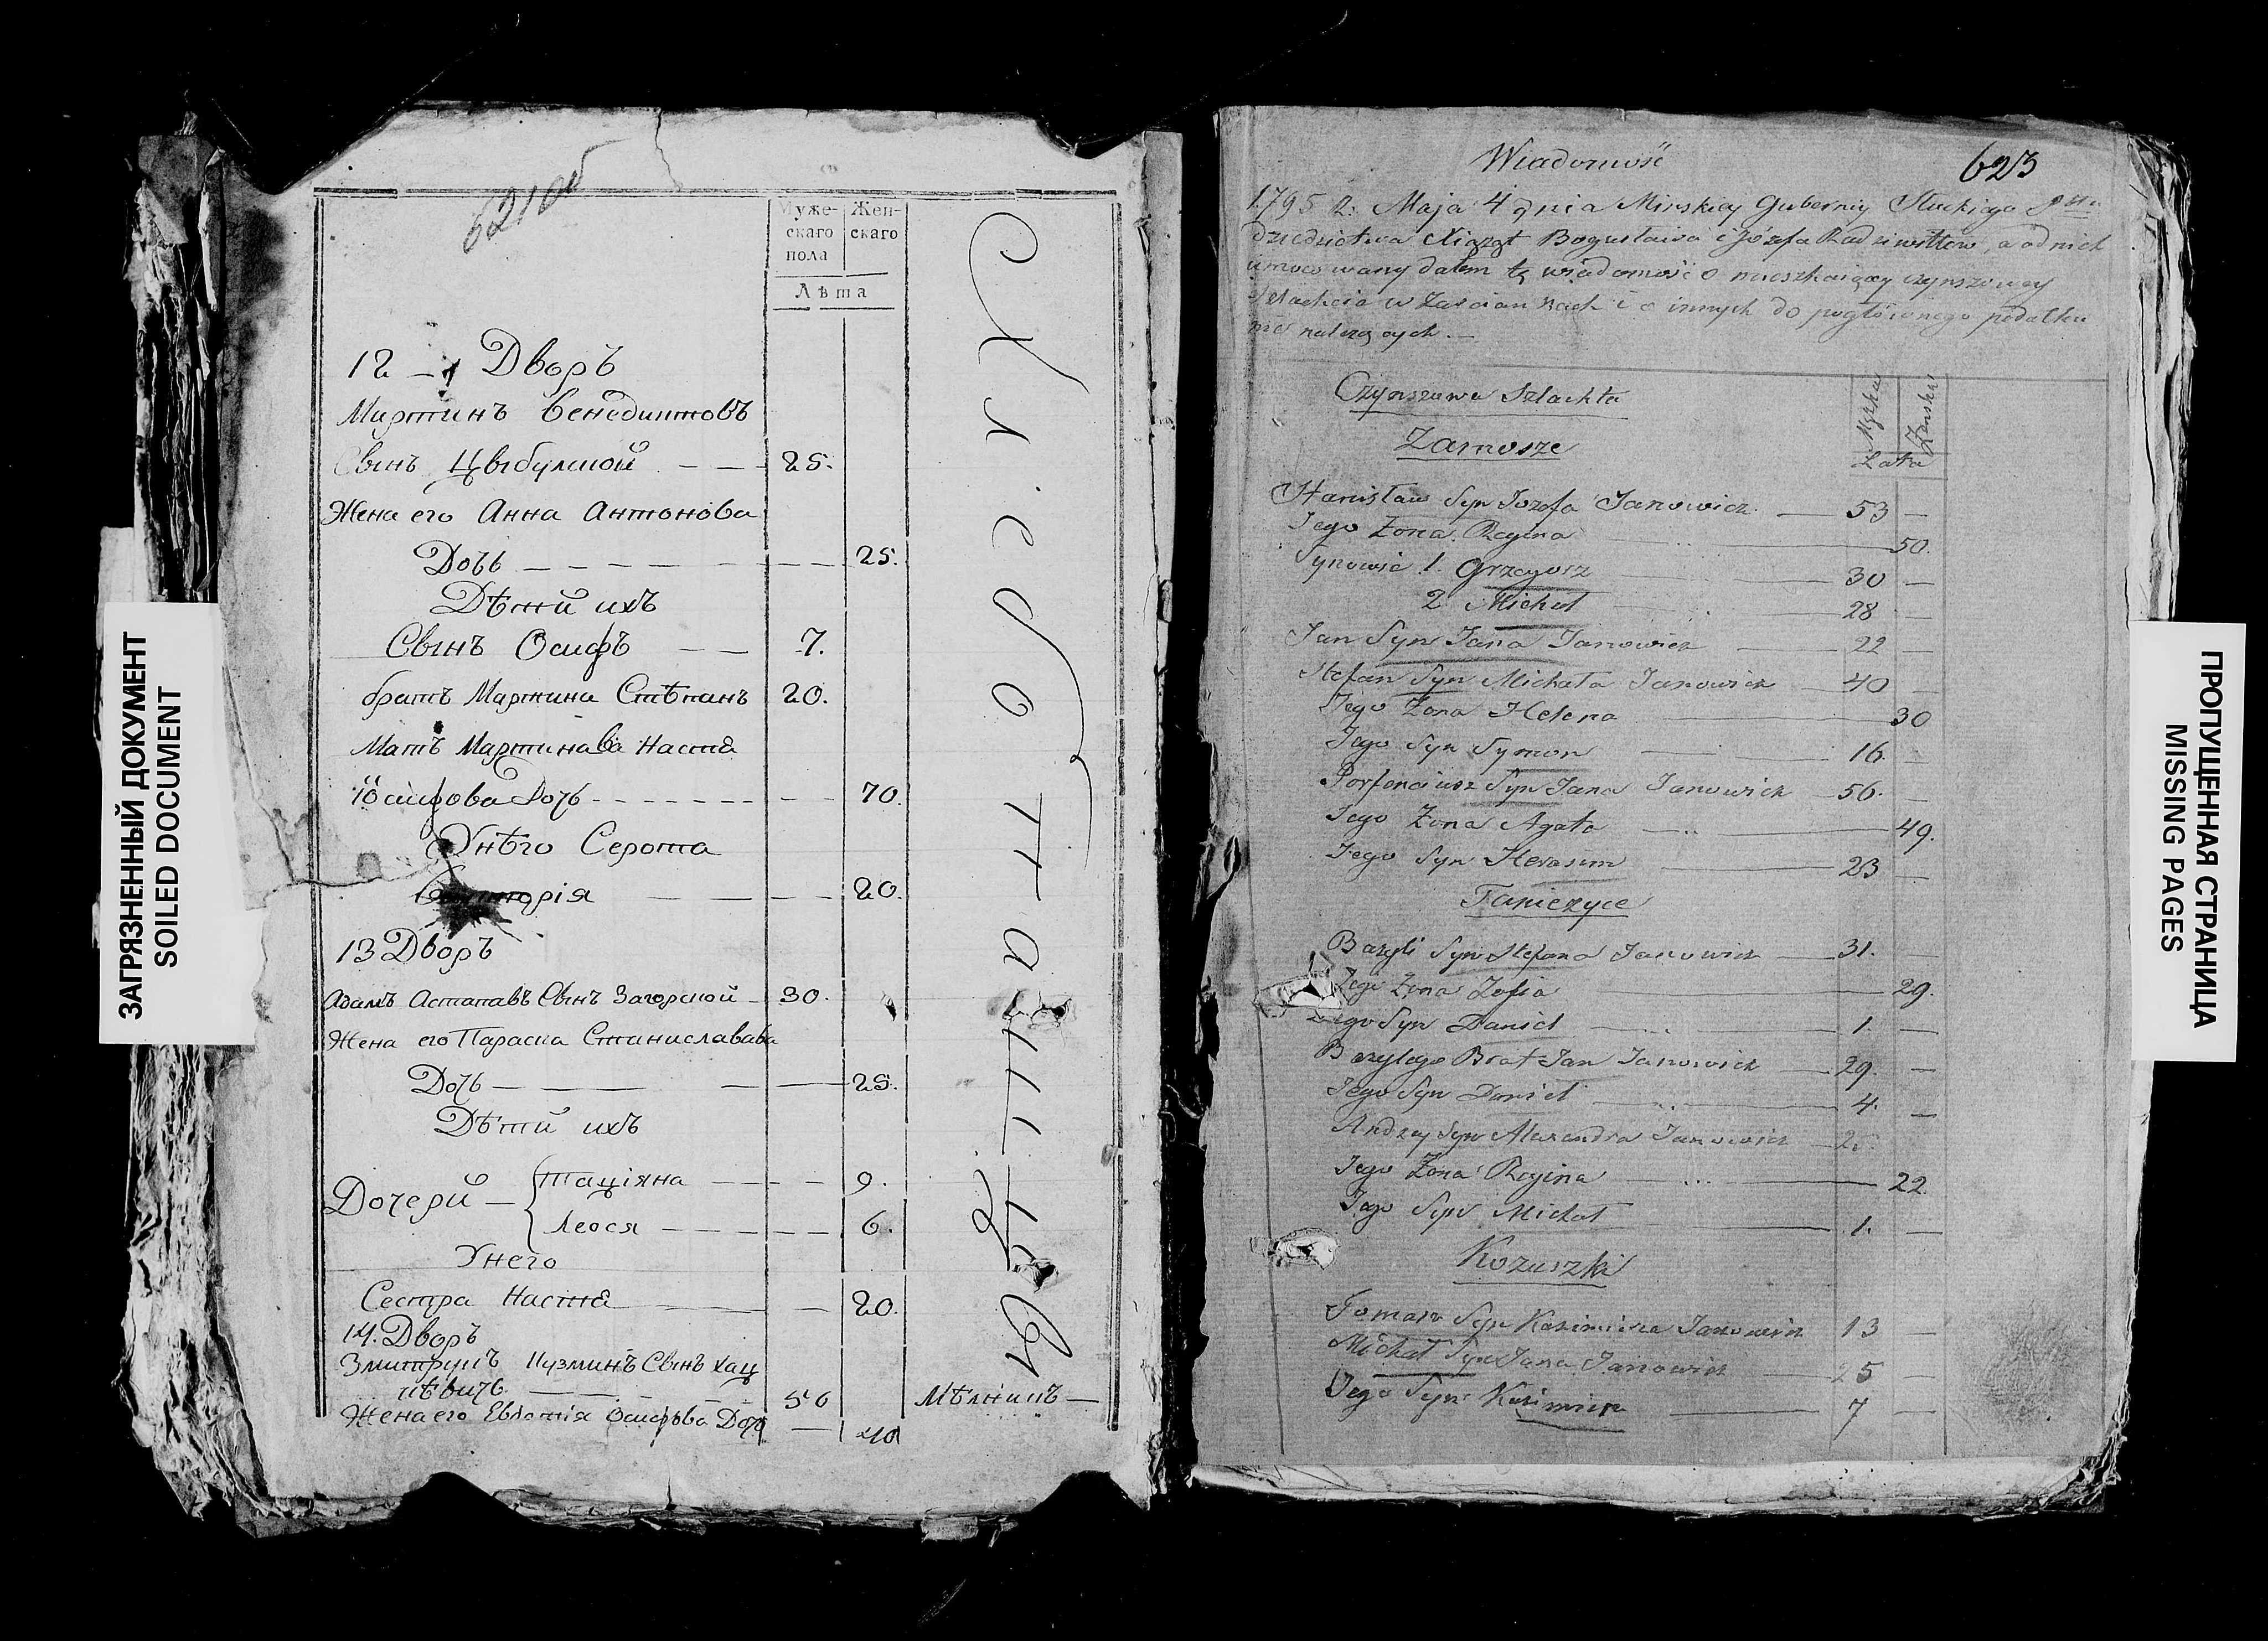 ЗАГРЯЗНЕННЫЙ ДОКУМЕНТ
SOILED DOCUMENT
621 об
Мужескаго пола
Женскаго
Лѣта
12 – Дворъ
Мартинъ Венедиктовъ
Сынъ Цыбулской — — 25.
Жена его Анна Антонова
Дочь — — — — 25.
Дѣтй ихъ
Сынъ Осифъ — — 7.
братъ Мартина Стѣпанъ 20.
Мать Мартинава Настя
Юсифова Дочь — — — 70.
Унѣго Серота
торія — — — 20.
13 Дворъ
Адамъ Астапавъ Сынъ Загорской — 30.
Жена его Параска Станиславава
Дочь — — — 25.
Дѣтй ихъ
Дочерй — Таціяна — — — 9.
Леося — — — 6.
Унего
Сестра Настя — — 20.
14. Дворъ
Змитрукъ Кузминъ Сынъ Хац
кѣвичь — — 50 Мѣлникъ —
Жена его Евдотія Осифова Дочь — 40
Хлебопашцы
Wiadomość
623
1795 R. Maja 4 dnia Minskiey Gubernij Słuckiego Pttu
dziedzictwa Xiążąt Bogusława i Józefa Radziwiłłow, a od nich
umocowany dałem tę wiadomość o mieszkaiącey czynszowey
szlachcie w Zascian kach i o innych do pogłównego podatku
nie należących. —
Męzka
Żenska
Lata
Czynszowa Szlachta
Zamosze
Stanisław Syn Jozefa Janowicz — 53 —
Jego Żona Regina — 50.
Synowie 1. Grzegorz — 30 —
2 Michał — 28 —
Jan Syn Jana Janowicz — 22 —
Stefan Syn Michała Janowicz — 40 —
Jego Żona Helena — 30
Jego Syn Symon — 16. —
Syn Jana Janowicz — 56. —
Jego Żona Agata — 49.
Jego Syn Herasim — 23 —
Bazyli Syn Stefana Janowicz — 31. —
Jego Żona Zofia — 29.
Jego Syn Daniel — 1. —
Bazylego Brat Jan Janowicz — 29. —
Jego Syn Daniel — 4. —
Andrzey Syn Alexandra Janowicz
Jego Żona Regina — 22
Jego Syn Michał — 1. —
Kozuszki
Tomasz Syn Kazimierza Janowicz 13 —
Michał Syn Jana Janowicz — 25 —
Jego Syn Kazimierz — 7 —
ПРОПУЩЕННАЯ СТРАНИЦА
MISSING PAGES